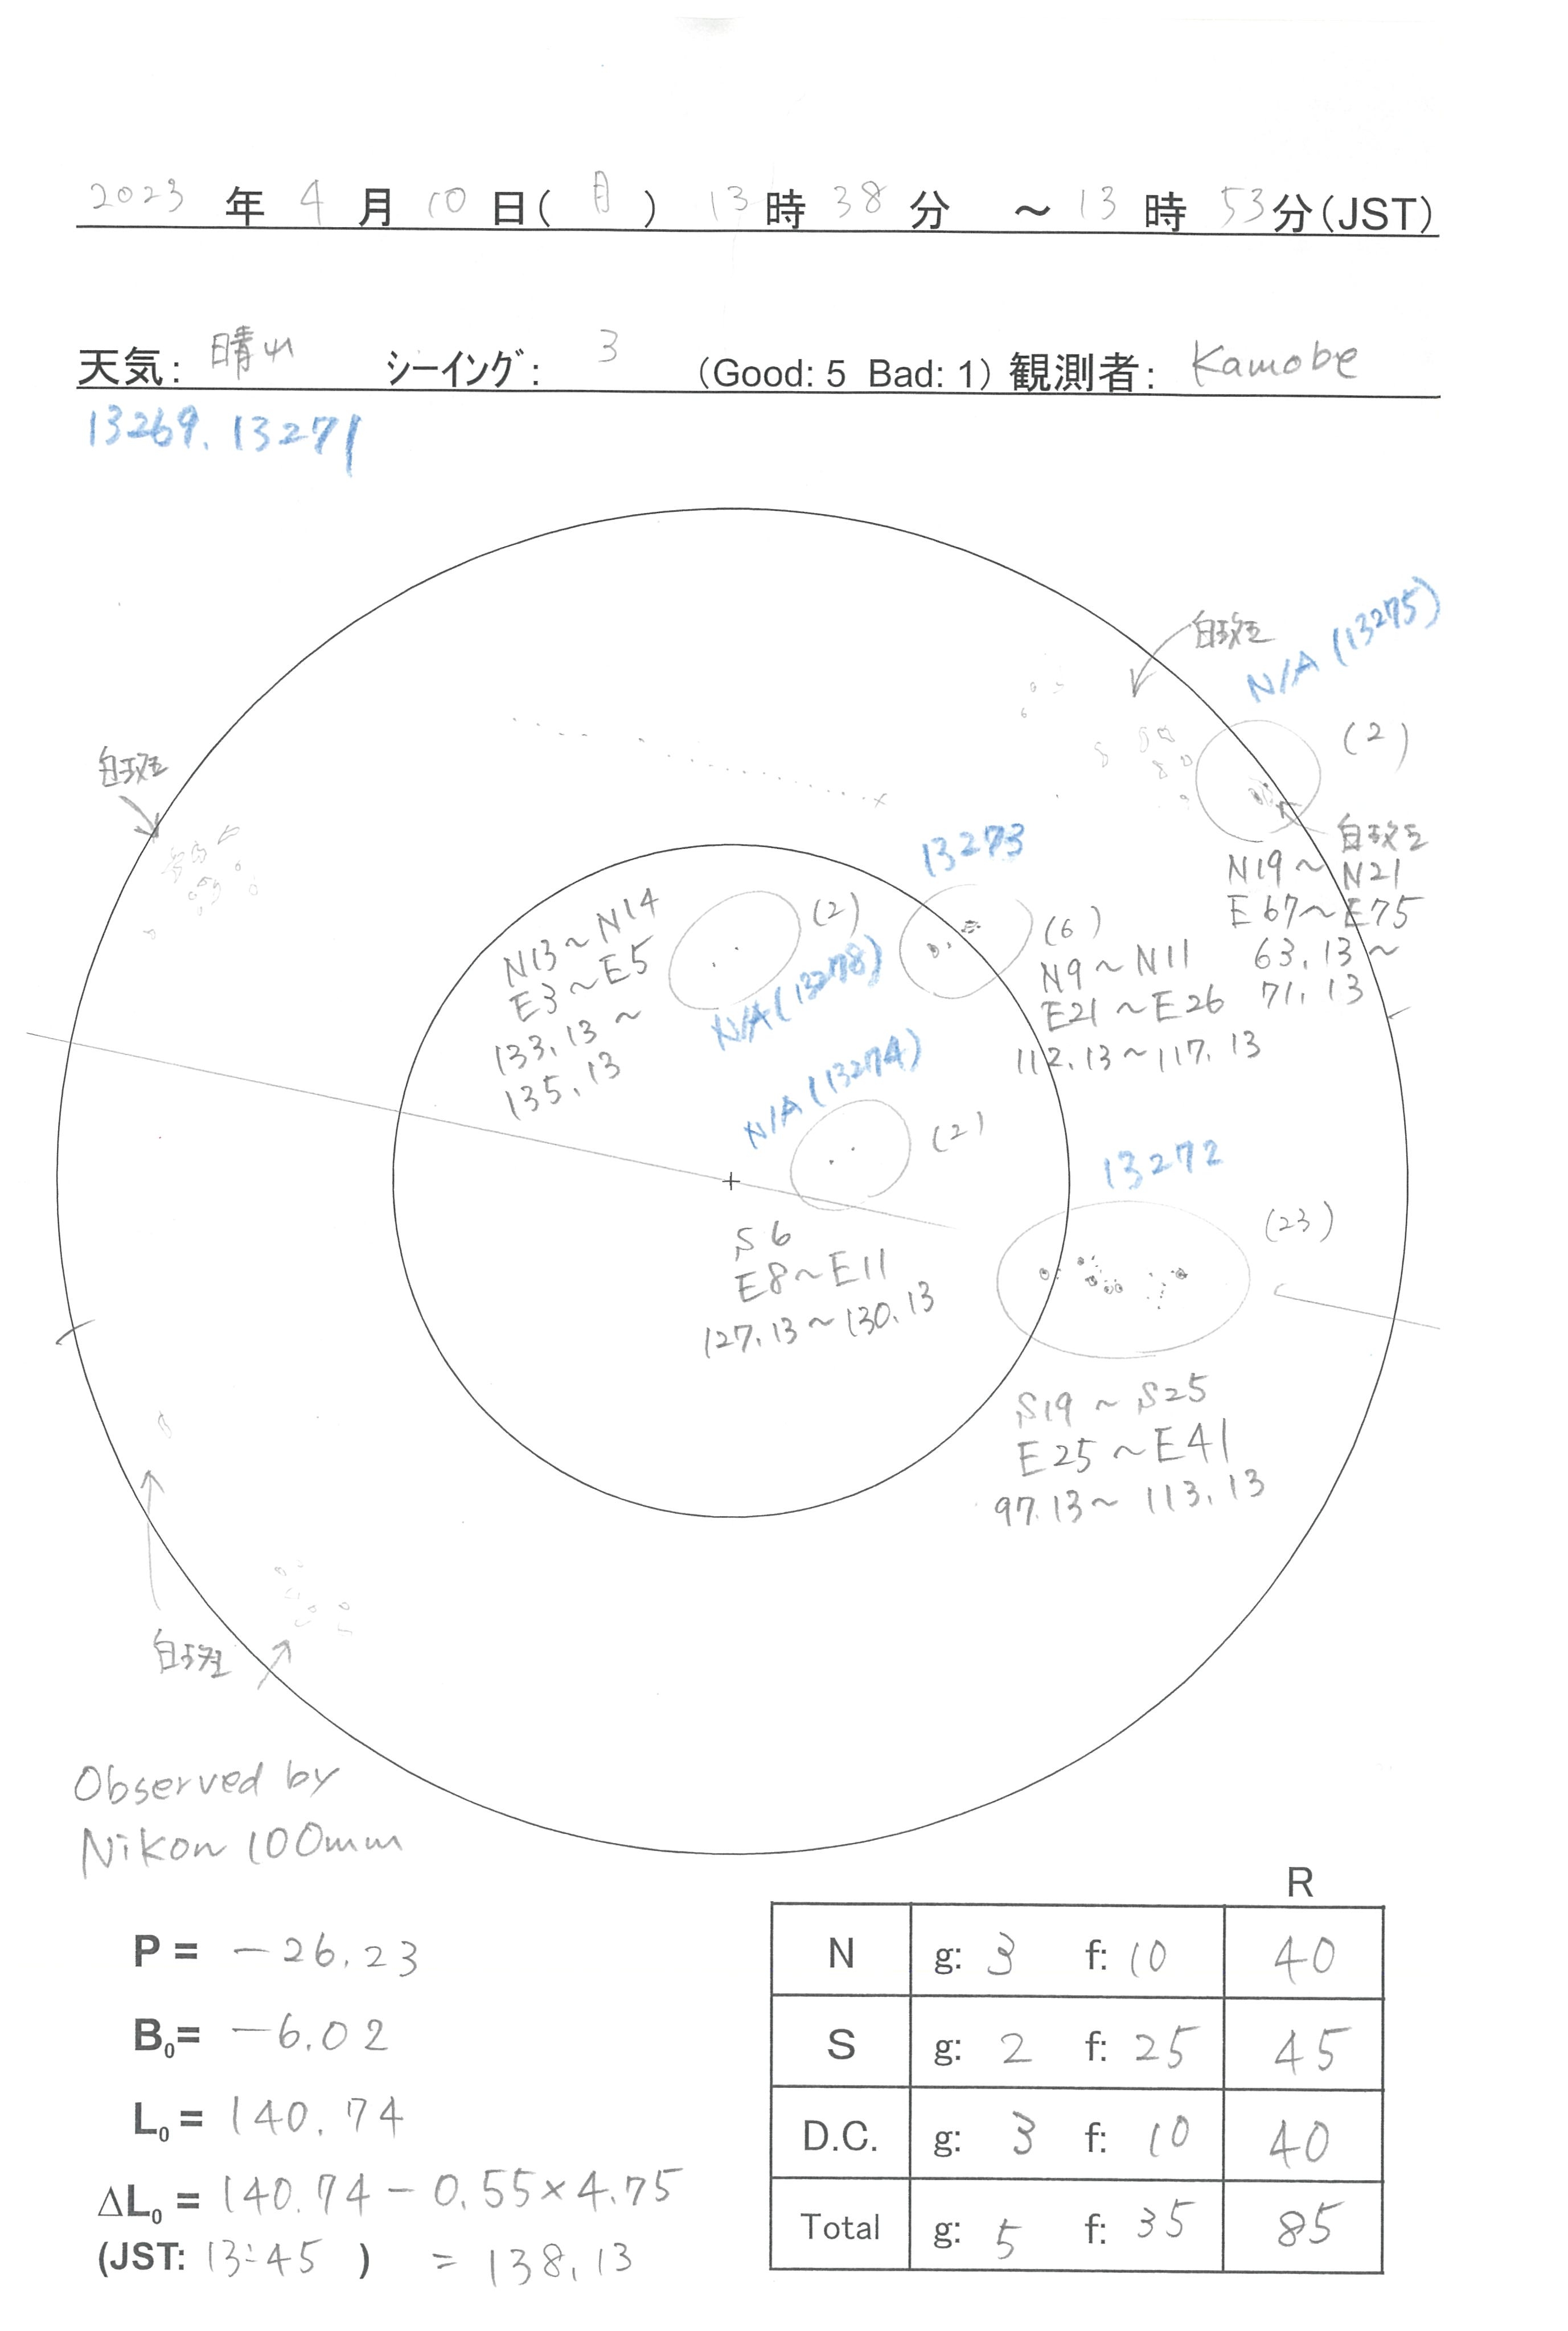 2023 年 4 月 10 日(月) 13 時 38 分 ～ 13 時 53 分(JST)
天気: 晴れ シーイング: 3 (Good: 5 Bad: 1) 観測者: Kamobe
13269. 13271
白斑
N/A (13275)
(2)
白斑
白斑
N19～N21
E67～E75
63.13～
71.13
13273
(6)
N9～N11
E21～E26
112.13～117.13
(2)
N13～N14
E3～E5
133.13～
135.13
N/A(13278)
N/A(13274)
(2)
S6
E8～E11
127.13～130.13
13272
(23)
S19～S25
E25～E41
97.13～113.13
白斑
Observed by
Nikon 100mm
P = -26.23
B₀= -6.02
L₀ = 140.74
ΔL₀ = 140.74 - 0.55×4.75
(JST: 13:45 ) = 138.13
R
N g: 3 f: 10 40
S g: 2 f: 25 45
D.C. g: 3 f: 10 40
Total g: 5 f: 35 85